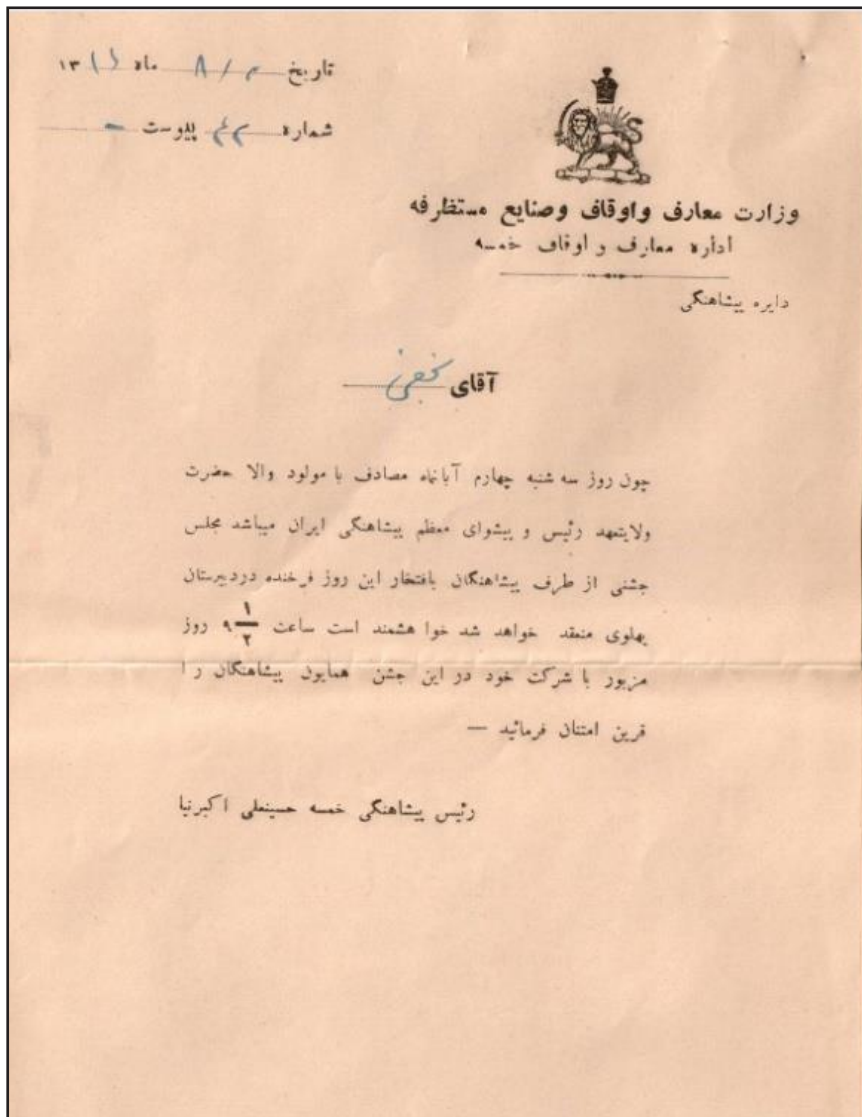 تاریخ ۲ / ۸ ماه ۱۳۱۶
شماره ۴۲ پیوست -
وزارت معارف و اوقاف و صنایع مستظرفه
اداره معارف و اوقاف خمسه
دایره پیشاهنگی
آقای
چون روز سه شنبه چهارم آبانماه مصادف با مولود والا حضرت
ولایتعهد رئیس و پیشوای معظم پیشاهنگی ایران میباشد مجلس
جشنی از طرف پیشاهنگان بافتخار این روز فرخنده در دبیرستان
پهلوی منعقد خواهد شد خوا هشمند است ساعت ۹ ۱/۲ روز
مزبور با شرکت خود در این جشن همایون پیشاهنگان را
قرین امتنان فرمائید —
رئیس پیشاهنگی خمسه حسینعلی اکبرنیا